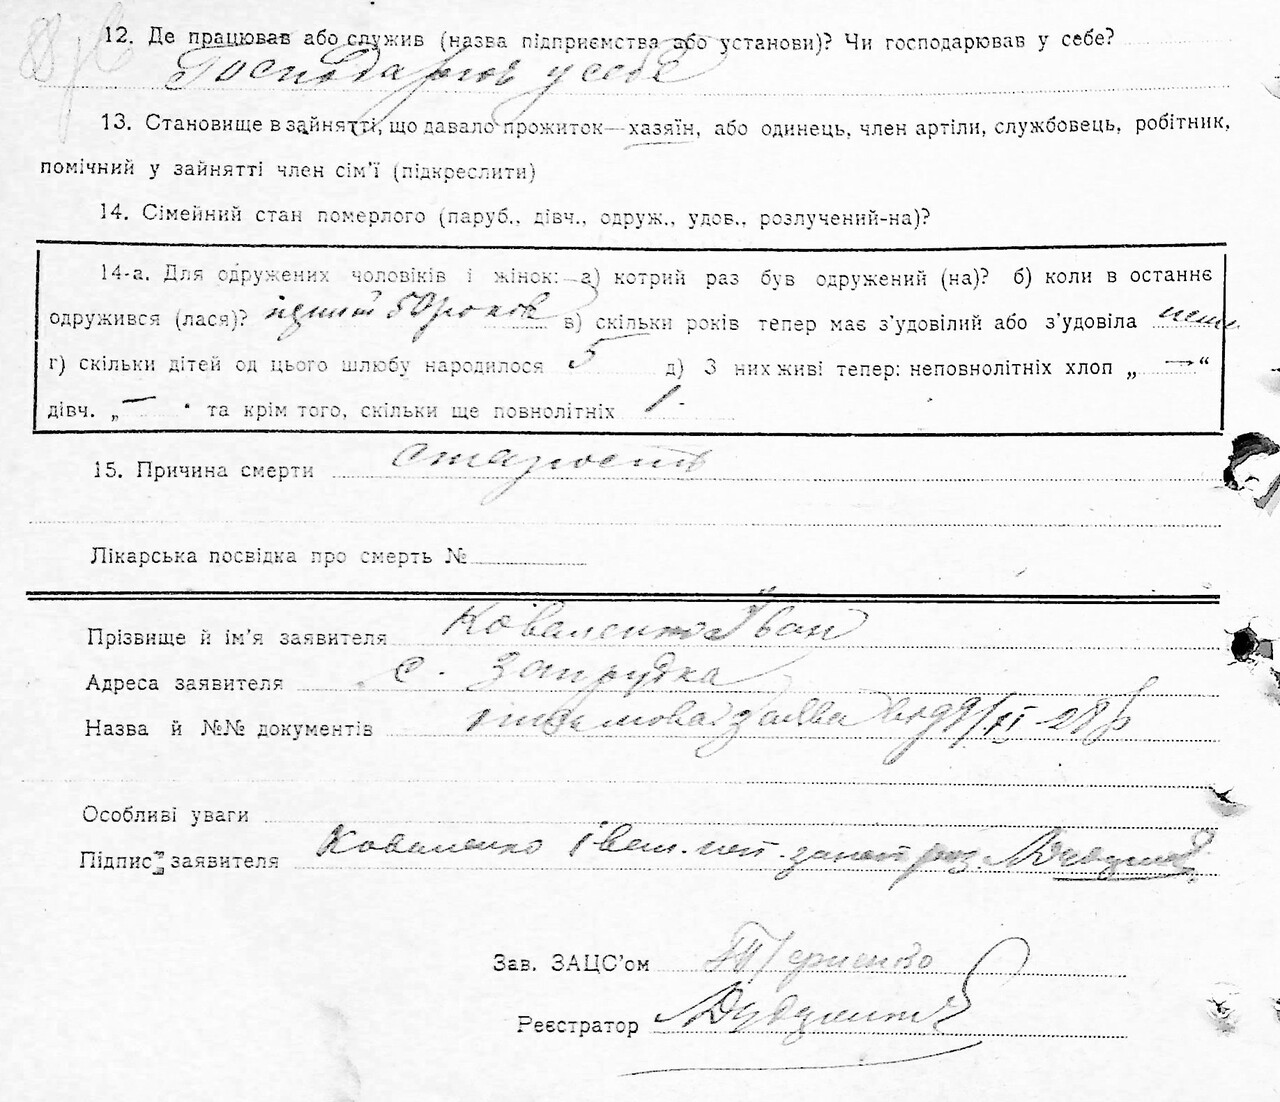 12. Де працював або служив (назва підприємства або установи)? Чи господарював у себе?
Господарюв у себе
13. Становище в зайнятті, що давало прожиток—хазяїн, або одинець, член артіли, службовець, робітник,
помічний у зайнятті член сім'ї (підкреслити)
14. Сімейний стан померлого (паруб., дівч., одруж., удов., розлучений-на)?
14-а. Для одружених чоловіків і жінок:—а) котрий раз був одружений (на)? б) коли в останнє
одружився (лася)? 50 років в) скільки років тепер має з'удовілий або з'удовіла
г) скільки дітей од цього шлюбу народилося 5 д) З них живі тепер: неповнолітніх хлоп „ — "
дівч. „ — " та крім того, скільки ще повнолітніх 1.
15. Причина смерти старость
Лікарська посвідка про смерть №
Прізвище й ім'я заявителя Коваленко Іван
Адреса заявителя с. Запрудка
Назва й №№ документів заява від 9/XI-28 р
Особливі уваги
Підпис заявителя Коваленко Іван
Зав. ЗАЦС'ом
Реєстратор